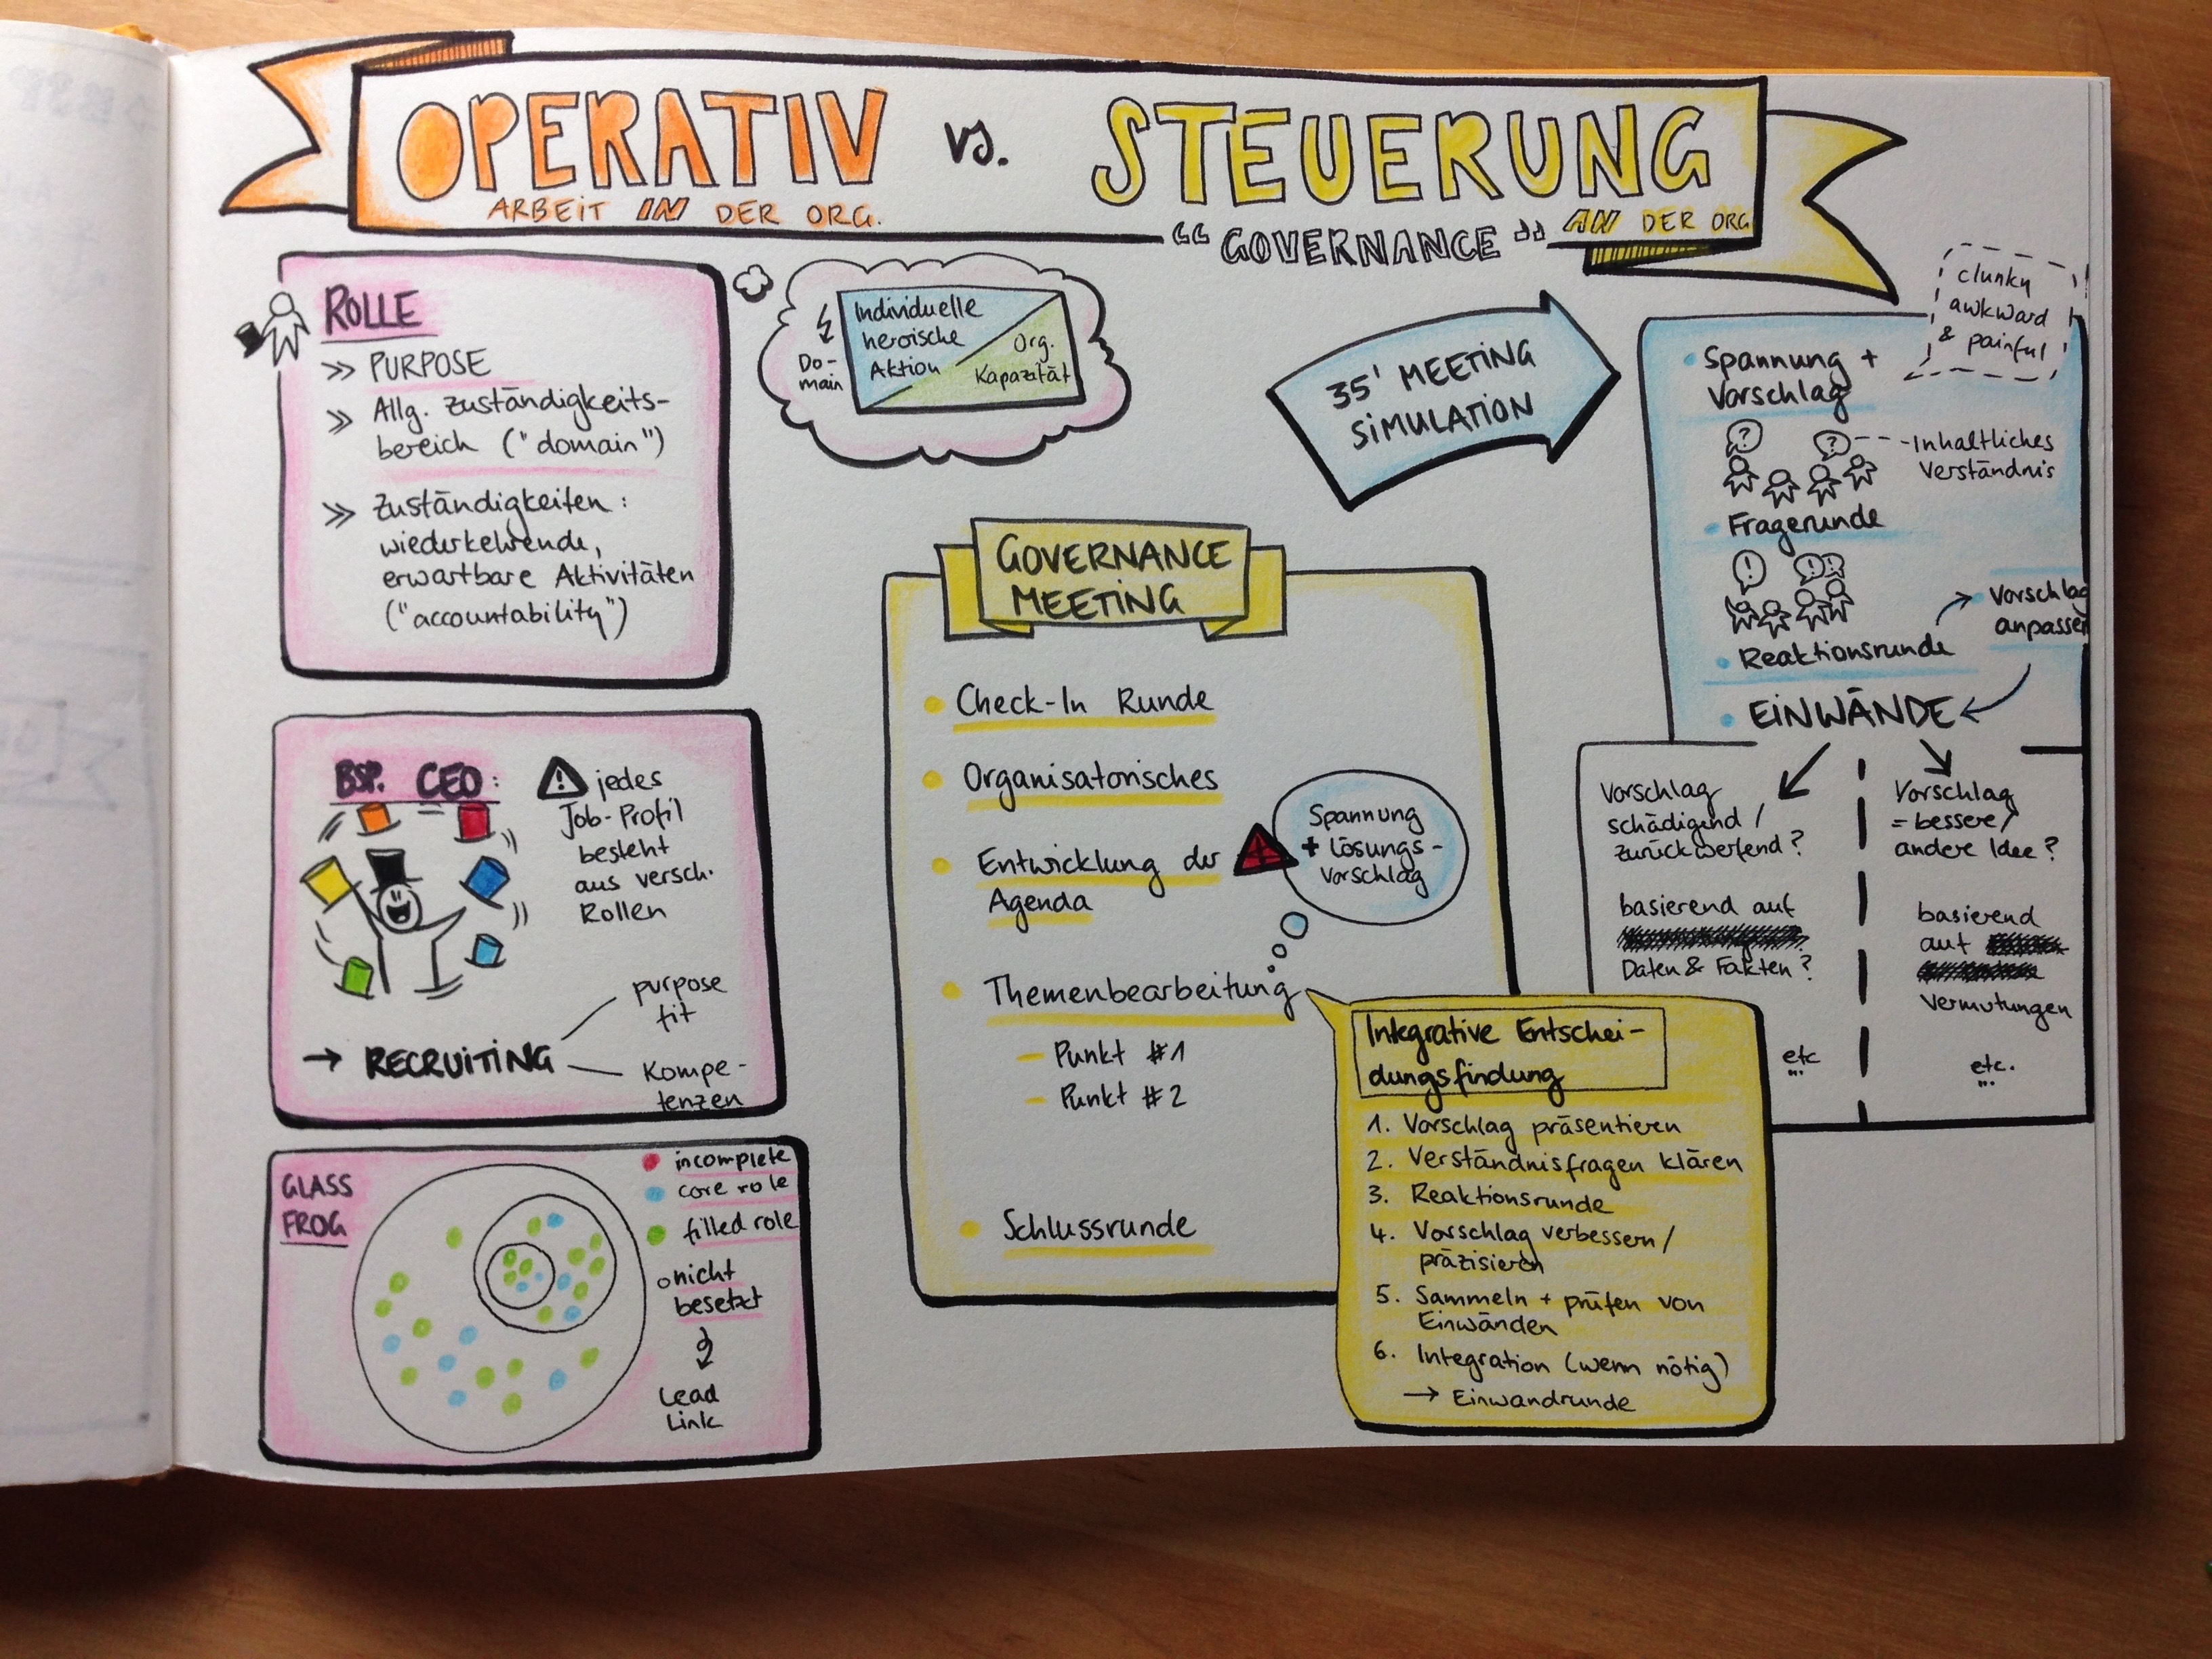 OPERATIV vs. STEUERUNG
ARBEIT IN DER ORG.
AN DER ORG
"GOVERNANCE"
ROLLE
>> PURPOSE
>> Allg. Zuständigkeits-
bereich ("domain")
>> Zuständigkeiten:
wiederkehrende,
erwartbare Aktivitäten
("accountability")
Do-
main
Individuelle
heroische
Aktion
Org.
Kapazität
35' MEETING
SIMULATION
clunky
awkward
& painful
Spannung +
Vorschlag
?
?
Inhaltliches
Verständnis
Fragerunde
!
!
Reaktionsrunde
Vorschlag
anpassen
EINWÄNDE
Vorschlag
schädigend /
zurückwerfend?
basierend auf
Daten & Fakten?
etc
...
Vorschlag
= bessere/
andere Idee?
basierend
auf
Vermutungen
etc.
...
BSP. CEO:
! jedes
Job-Profil
besteht
aus versch.
Rollen
→ RECRUITING
purpose
fit
Kompe-
tenzen
GLASS
FROG
incomplete
core role
filled role
nicht
besetzt
Lead
Link
GOVERNANCE
MEETING
Check-In Runde
Organisatorisches
Entwicklung der
Agenda
Spannung
+ Lösungs-
vorschlag
Themenbearbeitung
– Punkt #1
– Punkt #2
Schlussrunde
Integrative Entschei-
dungsfindung
1. Vorschlag präsentieren
2. Verständnisfragen klären
3. Reaktionsrunde
4. Vorschlag verbessern/
präzisieren
5. Sammeln + prüfen von
Einwänden
6. Integration (wenn nötig)
→ Einwandrunde